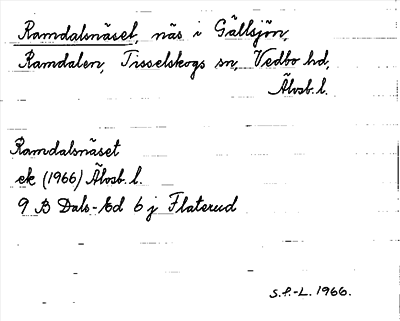 Ramdalsnäset, näs i Gällsjön,
Ramdalen, Tisselskogs sn, Vedbo hd,
Älvsb. l.
Ramdalsnäset
ek (1966) Älvsb. l.
9 B Dals-Ed 6 j Flaterud
S.F.-L. 1966.